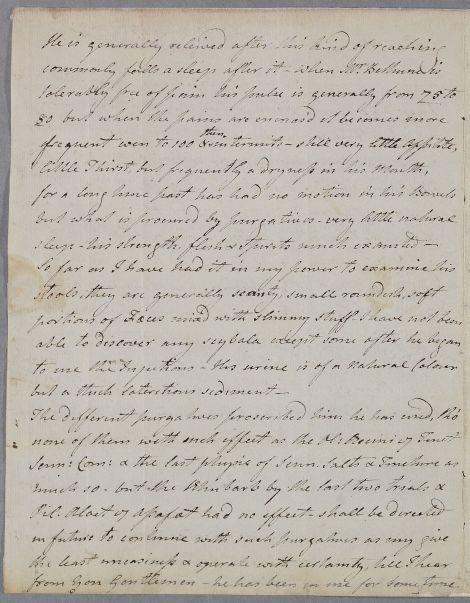 He is generally relieved after this kind of reaching
commonly falls a sleep after it - when Mr. Bethune is
tolerably free of pain his pulse is generally from 75 to
80 but when the pains are encreased it becomes more
frequent even to 100 & then intermits - still very little appitite,
little Thirst but frequently a dryness in his Mouth,
for a long time past has had no motion in his Bowels
but what is procured by purgatives - very little natural
sleep - his strength, flesh & spirits much exausted -
So far as I have had it in my power to examine his
stools, they are generally scanty, small roundish, soft
portions of Fæces mixd with slimmy stuff I have not been
able to discover any scybala except some after he began
to use the Injections - His urine is of a Natural Colour
but a thick lateritious sediment -
The different purgatives proscribed him he has used, tho'
none of them with such effect as the Ol: Ricini & Tinct
Senn: Com: & the last physic of Senn. Salts & Tincture as
much so - but the Rhubarb by the last two trials &
Pil. Aloet & asafæt had no effect - shall be directed
in future to continue with such purgatives as may give
the least uneasiness & operate with certainty, till I hear
from you Gentlemen - he has been in use for some time